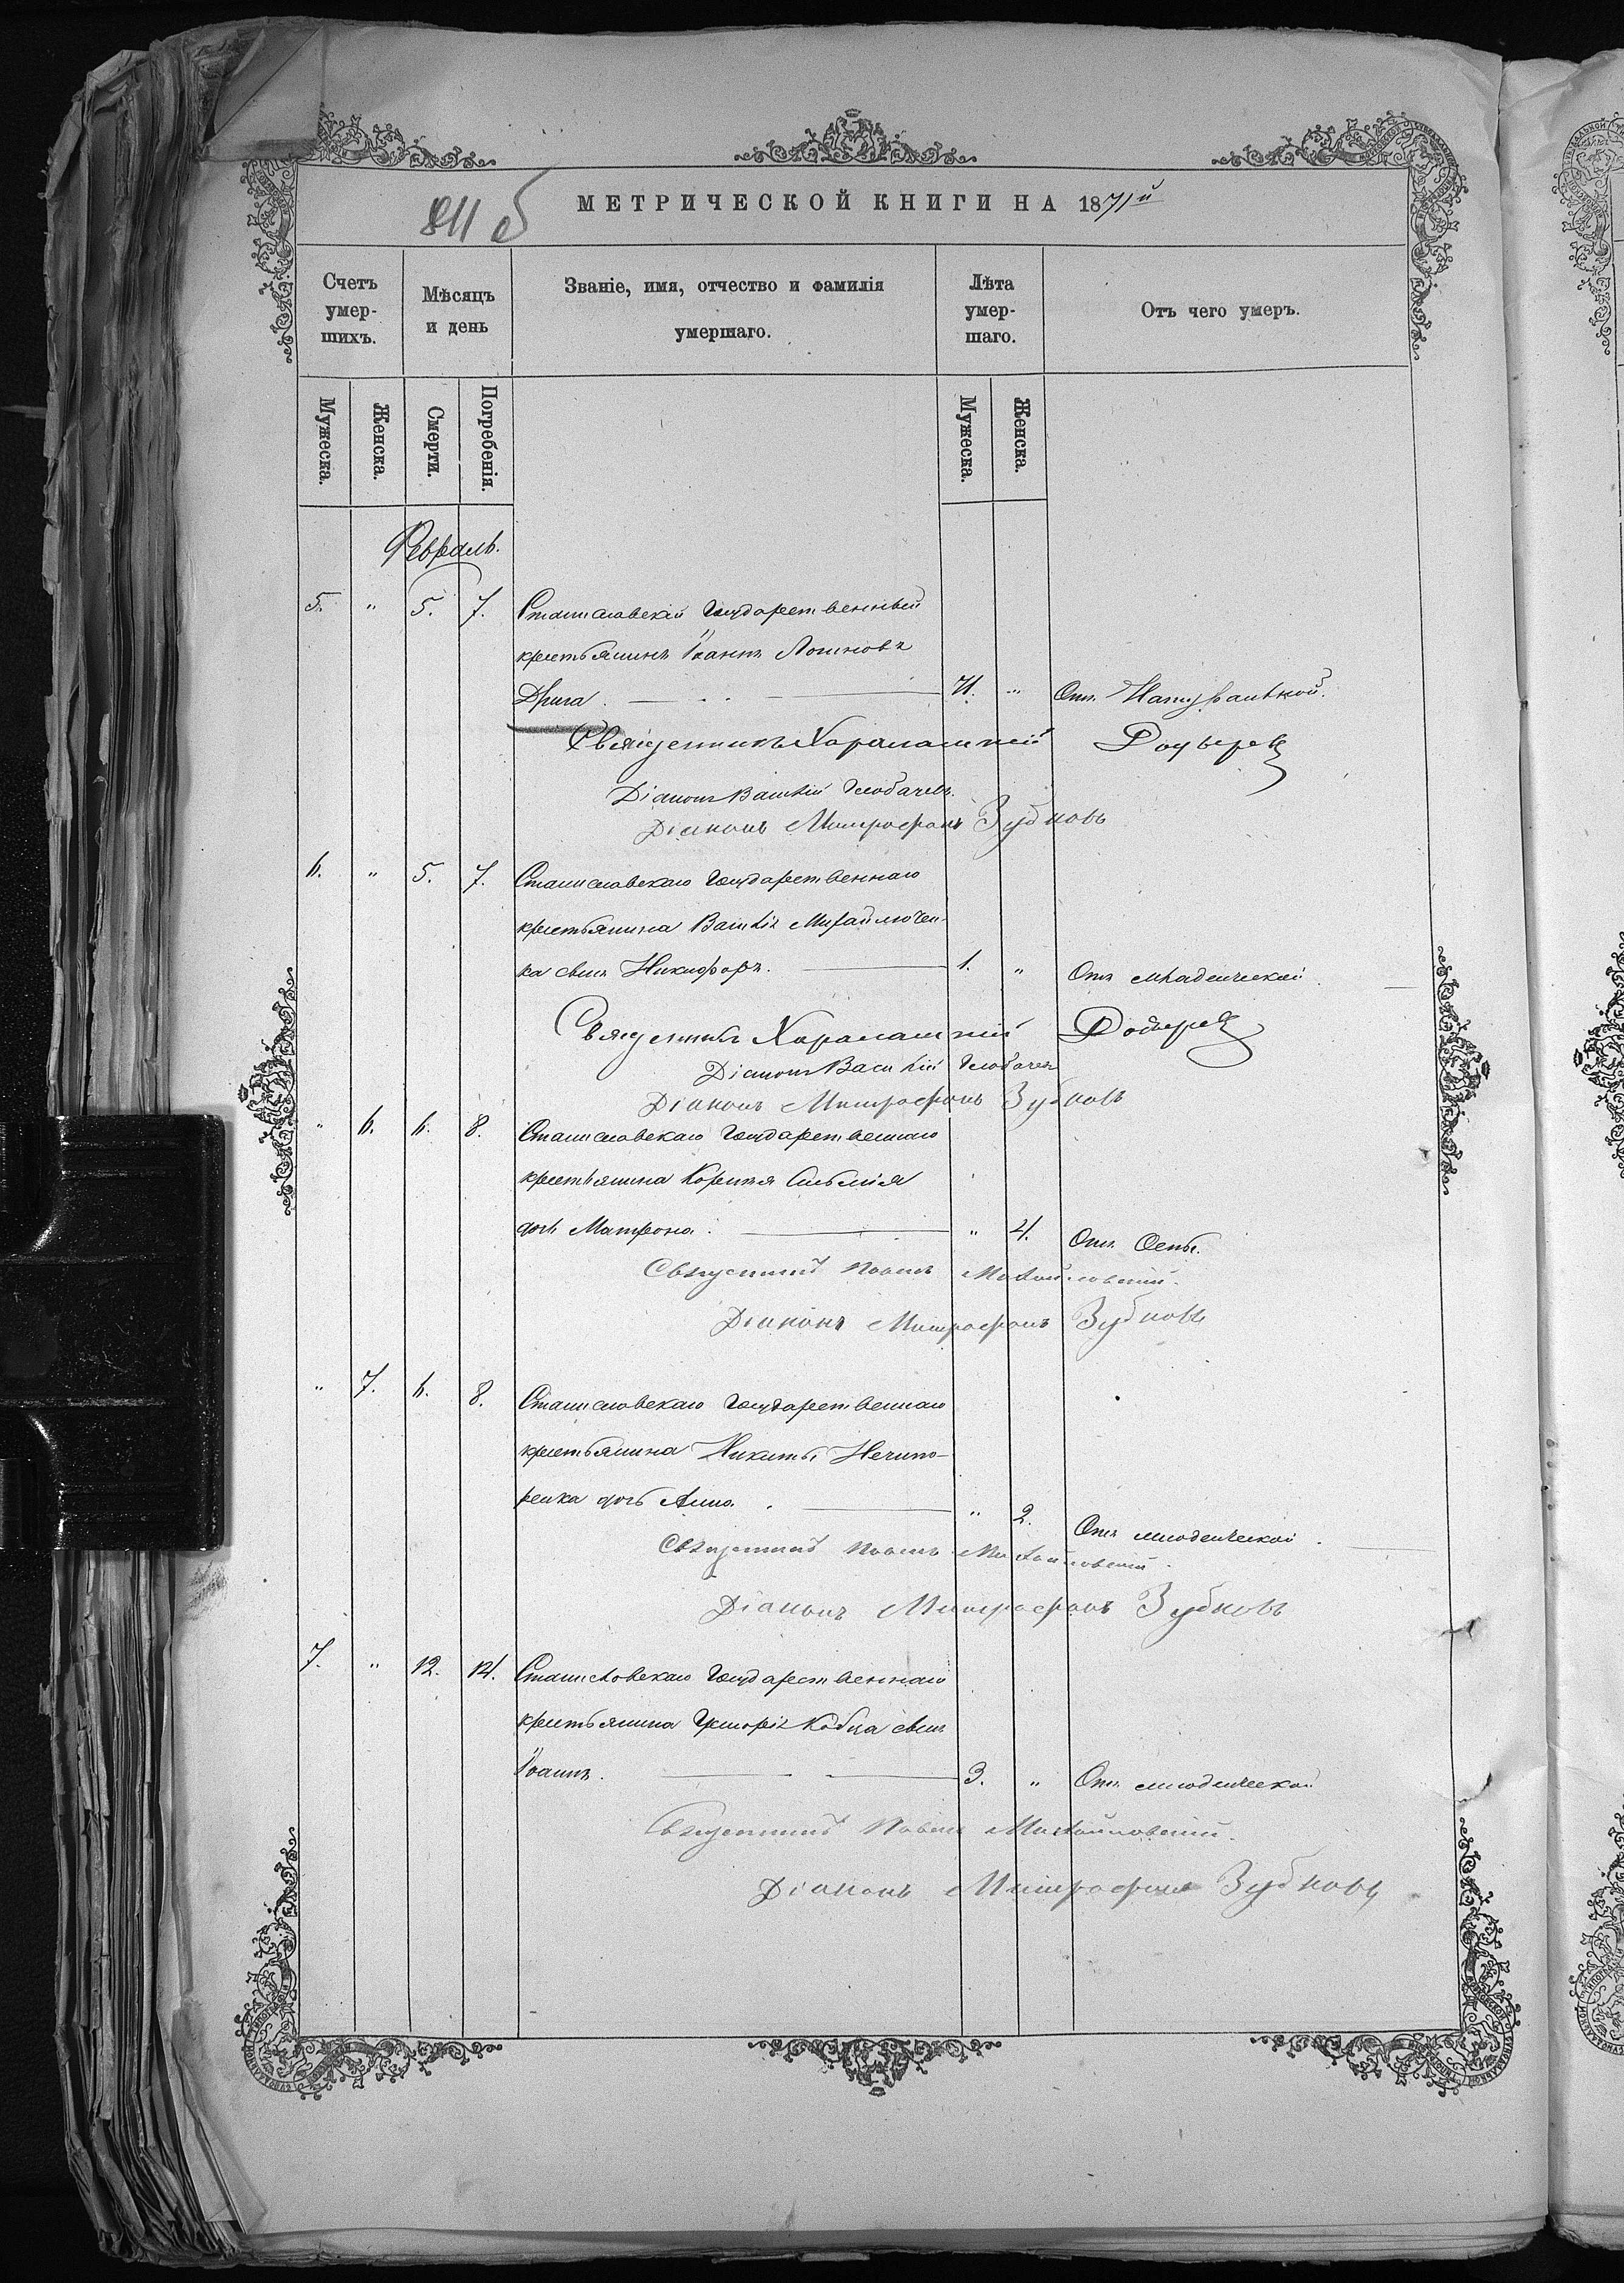 811 об
МЕТРИЧЕСКОЙ КНИГИ НА 1871й
Счетъ умер-шихъ.
Мѣсяцъ и день
Званіе, имя, отчество и фамилія умершаго.
Лѣта умер-шаго.
Отъ чего умеръ.
Мужеска. Женска. Смерти. Погребенія. Мужеска. Женска.
Февраль.
5. " 5. 7. Станиславскій Государственный
крестьянинъ Іоаннъ Логиновъ
Дрига. 71. " Отъ Натуральной.
Священникъ Харалампій
Діаконъ Василій
Діаконъ Митрофанъ Зубковъ
6. " 5. 7. Станиславскаго Государственнаго
крестьянина Василія Михайлючен-
ка сынъ Никифоръ. 1. " Отъ младенческой.
Священникъ Харалампій
Діаконъ Василій
Діаконъ Митрофанъ Зубковъ
" 6. 6. 8. Станиславскаго Государственнаго
крестьянина Корнилія
дочь Матрона. " 4. Отъ Оспы.
Священникъ Павелъ Михайловскій.
Діаконъ Митрофанъ Зубковъ
" 7. 6. 8. Станиславскаго Государственнаго
крестьянина Никиты Нечипо-
ренка дочь Анна. " 2. Отъ младенческой.
Священникъ Павелъ Михайловскій.
Діаконъ Митрофанъ Зубковъ
7. " 12. 14. Станиславскаго Государственнаго
крестьянина Григорія Кобца сынъ
Іоаннъ. 3. " Отъ младенческой
Священникъ Павелъ Михайловскій.
Діаконъ Митрофанъ Зубковъ